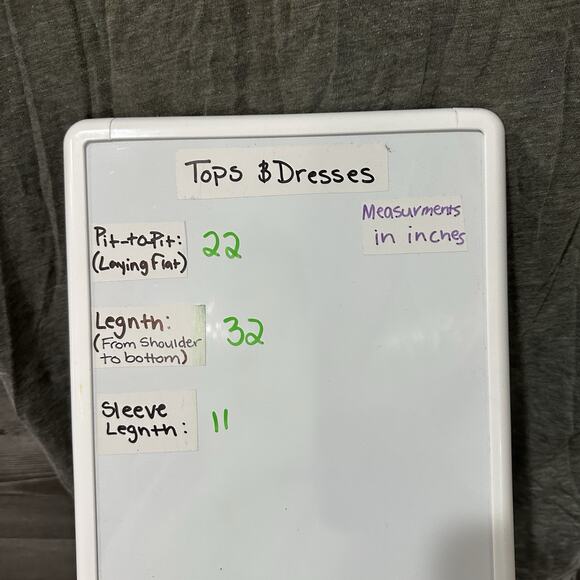 Tops & Dresses
Measurments
in inches
Pit-to-Pit: 22
(Laying Flat)
Legnth: 32
(From Shoulder
to bottom)
Sleeve
Legnth: 11